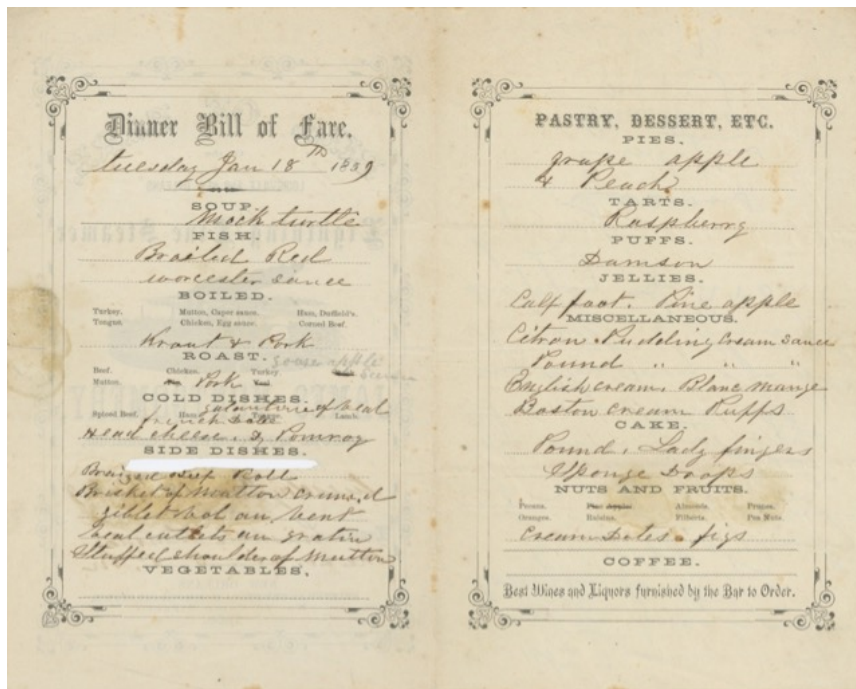 Dinner Bill of Fare.
Tuesday Jan 18th 1859
SOUP.
Mock turtle
FISH.
Broiled Red
worcester sauce
BOILED.
Turkey. Mutton, Caper sauce. Ham, Duffield's.
Tongue. Chicken, Egg sauce. Corned Beef.
Krout & Pork
ROAST. goose apple
Beef. Chicken. Turkey.
Mutton. Pork
COLD DISHES.
Spiced Beef. Ham. galantine of veal Lamb.
Head cheese. & Pomroy
SIDE DISHES.
Braized Beef Roll
Brisket of Mutton crumed
giblet vol au vent
veal cutlets au gratin
Stuffed shoulder of Mutton
VEGETABLES,
PASTRY, DESSERT, ETC.
PIES.
grape apple
& Peach
TARTS.
Raspberry
PUFFS.
Damson
JELLIES.
Calf foot. Pine apple
MISCELLANEOUS.
Citron Pudding Cream Sauce
Pound " " "
English cream. Blanc mange
Boston cream Puffs
CAKE.
Pound, Lady fingers
Sponge Drops
NUTS AND FRUITS.
Pecans. Almonds. Prunes.
Oranges. Raisins. Filberts. Pea Nuts.
Cream Dates. figs
COFFEE.
Best Wines and Liquors furnished by the Bar to Order.